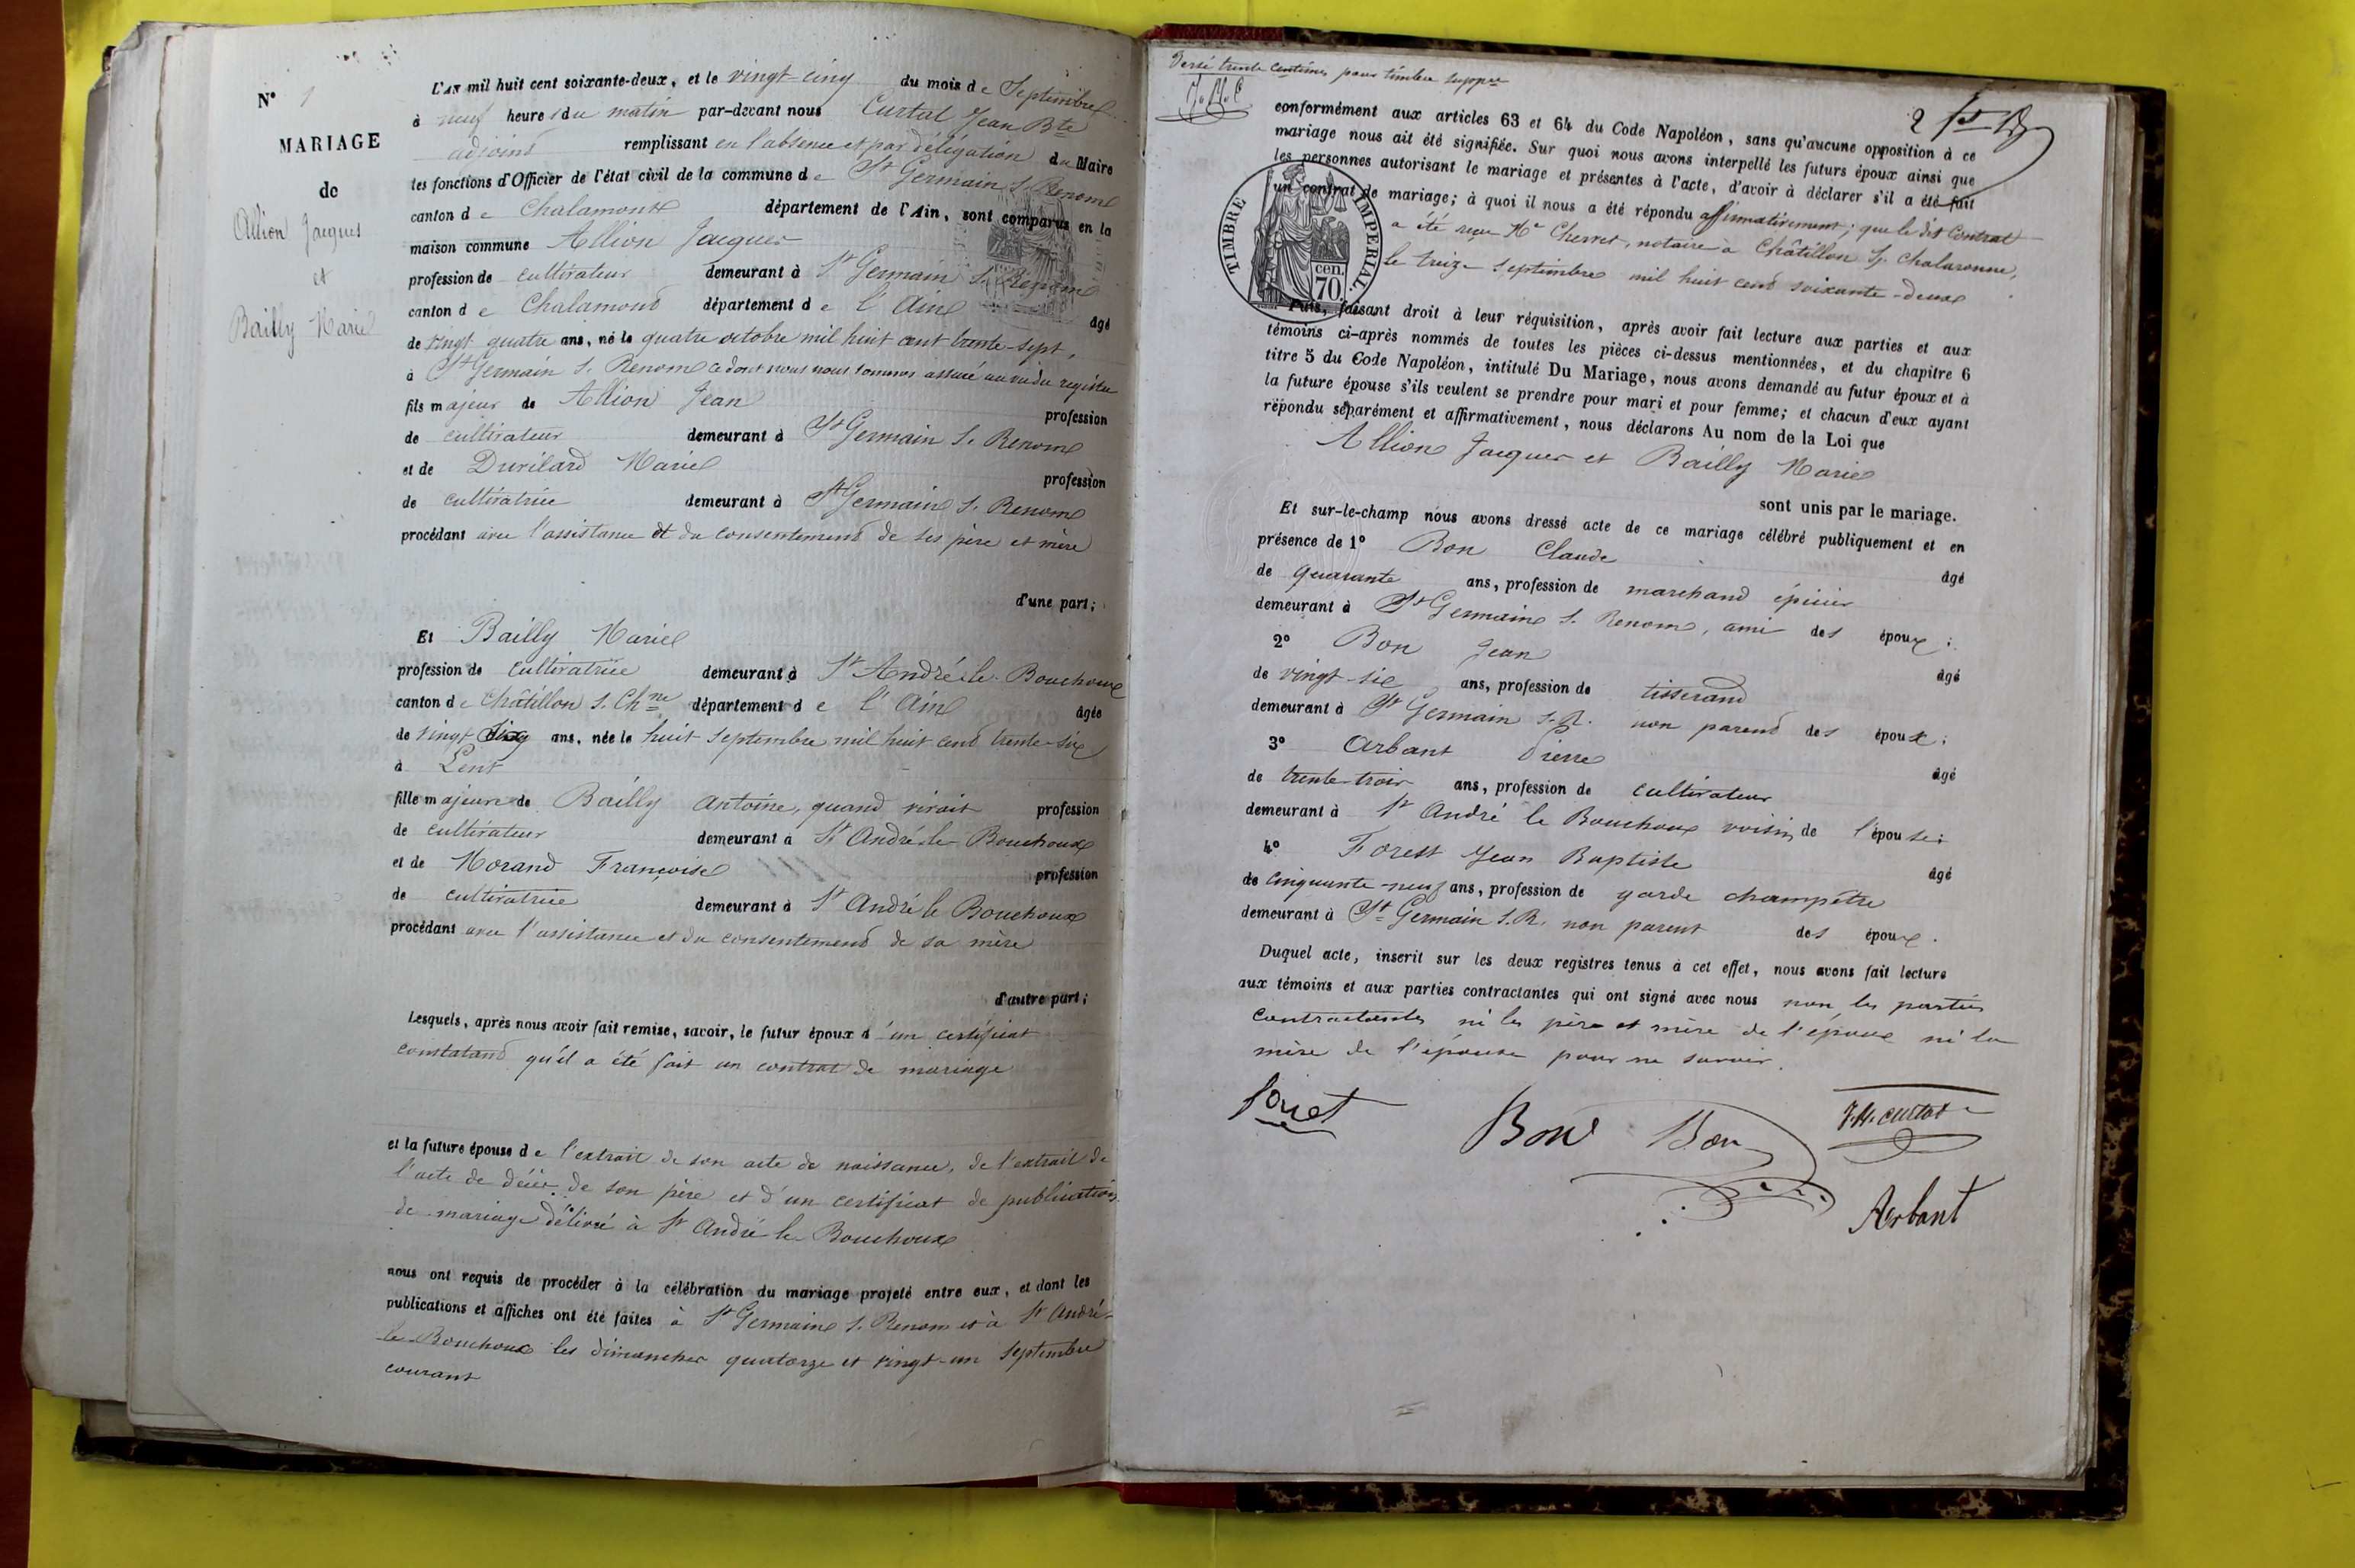 N° 1
MARIAGE
de
Allion Jacques
et
Bailly Marie
L'AN mil huit cent soixante-deux, et le vingt-cinq du mois de Septembre
à neuf heures du matin par-devant nous Curtat Jean Bte
adjoint remplissant en l'absence et par délégation du Maire
les fonctions d'Officier de l'état civil de la commune de St Germain s. Renom
canton de Chalamont département de l'Ain, sont comparus en la
maison commune Allion Jacques
profession de cultivateur demeurant à St Germain s. Renom
canton de Chalamont département de l'Ain âgé
de vingt quatre ans, né le quatre octobre mil huit cent trente-sept,
à St Germain s. Renom ce dont nous nous sommes assuré au vu du registre
fils majeur de Allion Jean profession
de cultivateur demeurant à St Germain s. Renom
et de Durilard Marie profession
de cultivatrice demeurant à St Germain s. Renom
procédant avec l'assistance et du consentement de ses père et mère
d'une part;
Et Bailly Marie
profession de cultivatrice demeurant à St André le Bouchoux
canton de Châtillon s. Chne département de l'Ain âgée
de vingt ans, née le huit septembre mil huit cent trente-six
à Lent
fille majeure de Bailly Antoine, quand vivait profession
de cultivateur demeurant à St André le Bouchoux
et de Morand Françoise profession
de cultivatrice demeurant à St André le Bouchoux
procédant avec l'assistance et du consentement de sa mère
d'autre part;
Lesquels, après nous avoir fait remise, savoir, le futur époux d'un certificat
constatant qu'il a été fait un contrat de mariage
et la future épouse de l'extrait de son acte de naissance, de l'extrait de
l'acte de décès de son père et d'un certificat de publication
de mariage délivré à St André le Bouchoux
nous ont requis de procéder à la célébration du mariage projeté entre eux, et dont les
publications et affiches ont été faites à St Germain s. Renom et à St André-
le-Bouchoux les dimanches quatorze et vingt-un septembre
courant
Versé trente centimes pour timbre suppre
2
conformément aux articles 63 et 64 du Code Napoléon, sans qu'aucune opposition à ce
mariage nous ait été signifiée. Sur quoi nous avons interpellé les futurs époux ainsi que
les personnes autorisant le mariage et présentes à l'acte, d'avoir à déclarer s'il a été fait
un contrat de mariage; à quoi il nous a été répondu affirmativement; que le dit contrat
a été reçu Me Cherret, notaire à Châtillon s. Chalaronne,
le treize septembre mil huit cent soixante-deux
TIMBRE IMPERIAL.
70 cen.
Puis, faisant droit à leur réquisition, après avoir fait lecture aux parties et aux
témoins ci-après nommés de toutes les pièces ci-dessus mentionnées, et du chapitre 6
titre 5 du Code Napoléon, intitulé Du Mariage, nous avons demandé au futur époux et à
la future épouse s'ils veulent se prendre pour mari et pour femme; et chacun d'eux ayant
répondu séparément et affirmativement, nous déclarons Au nom de la Loi que
Allion Jacques et Bailly Marie
sont unis par le mariage.
Et sur-le-champ nous avons dressé acte de ce mariage célébré publiquement et en
présence de 1° Bon Claude âgé
de quarante ans, profession de marchand épicier
demeurant à St Germain s. Renom, ami des époux;
2° Bon Jean âgé
de vingt-six ans, profession de tisserand
demeurant à St Germain s. R. non parent des époux;
3° Arbant Pierre âgé
de trente-trois ans, profession de cultivateur
demeurant à St André le Bouchoux voisin de l'épouse;
4° Forest Jean Baptiste âgé
de cinquante-neuf ans, profession de garde champêtre
demeurant à St Germain s. R. non parent des époux.
Duquel acte, inscrit sur les deux registres tenus à cet effet, nous avons fait lecture
aux témoins et aux parties contractantes qui ont signé avec nous non les parties
contractantes ni les père et mère de l'époux ni la
mère de l'épouse pour ne savoir.
Foret
Bon Bon
J.B. Curtat
Arbant